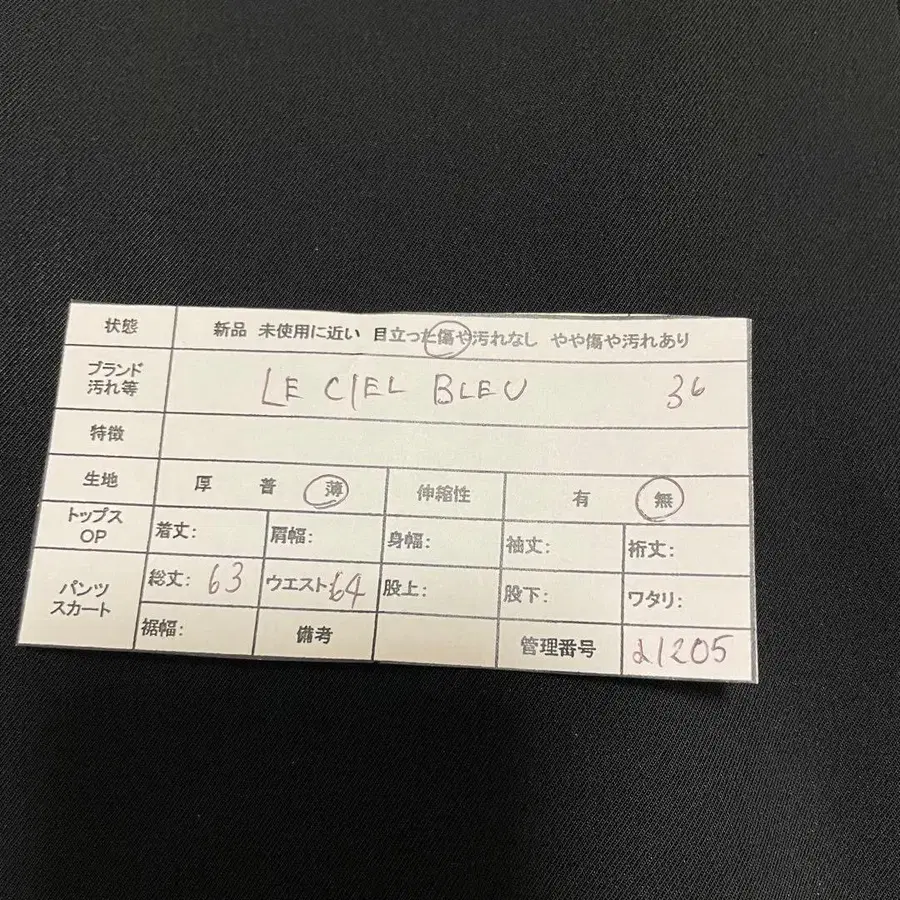 状態 新品 未使用に近い 目立った傷や汚れなし やや傷や汚れあり
ブランド
汚れ等 LE CIEL BLEU 36
特徴
生地 厚 普 薄 伸縮性 有 無
トップス
OP 着丈: 肩幅: 身幅: 袖丈: 裄丈:
パンツ
スカート 総丈: 63 ウエスト: 64 股上: 股下: ワタリ:
裾幅: 備考 管理番号 21205